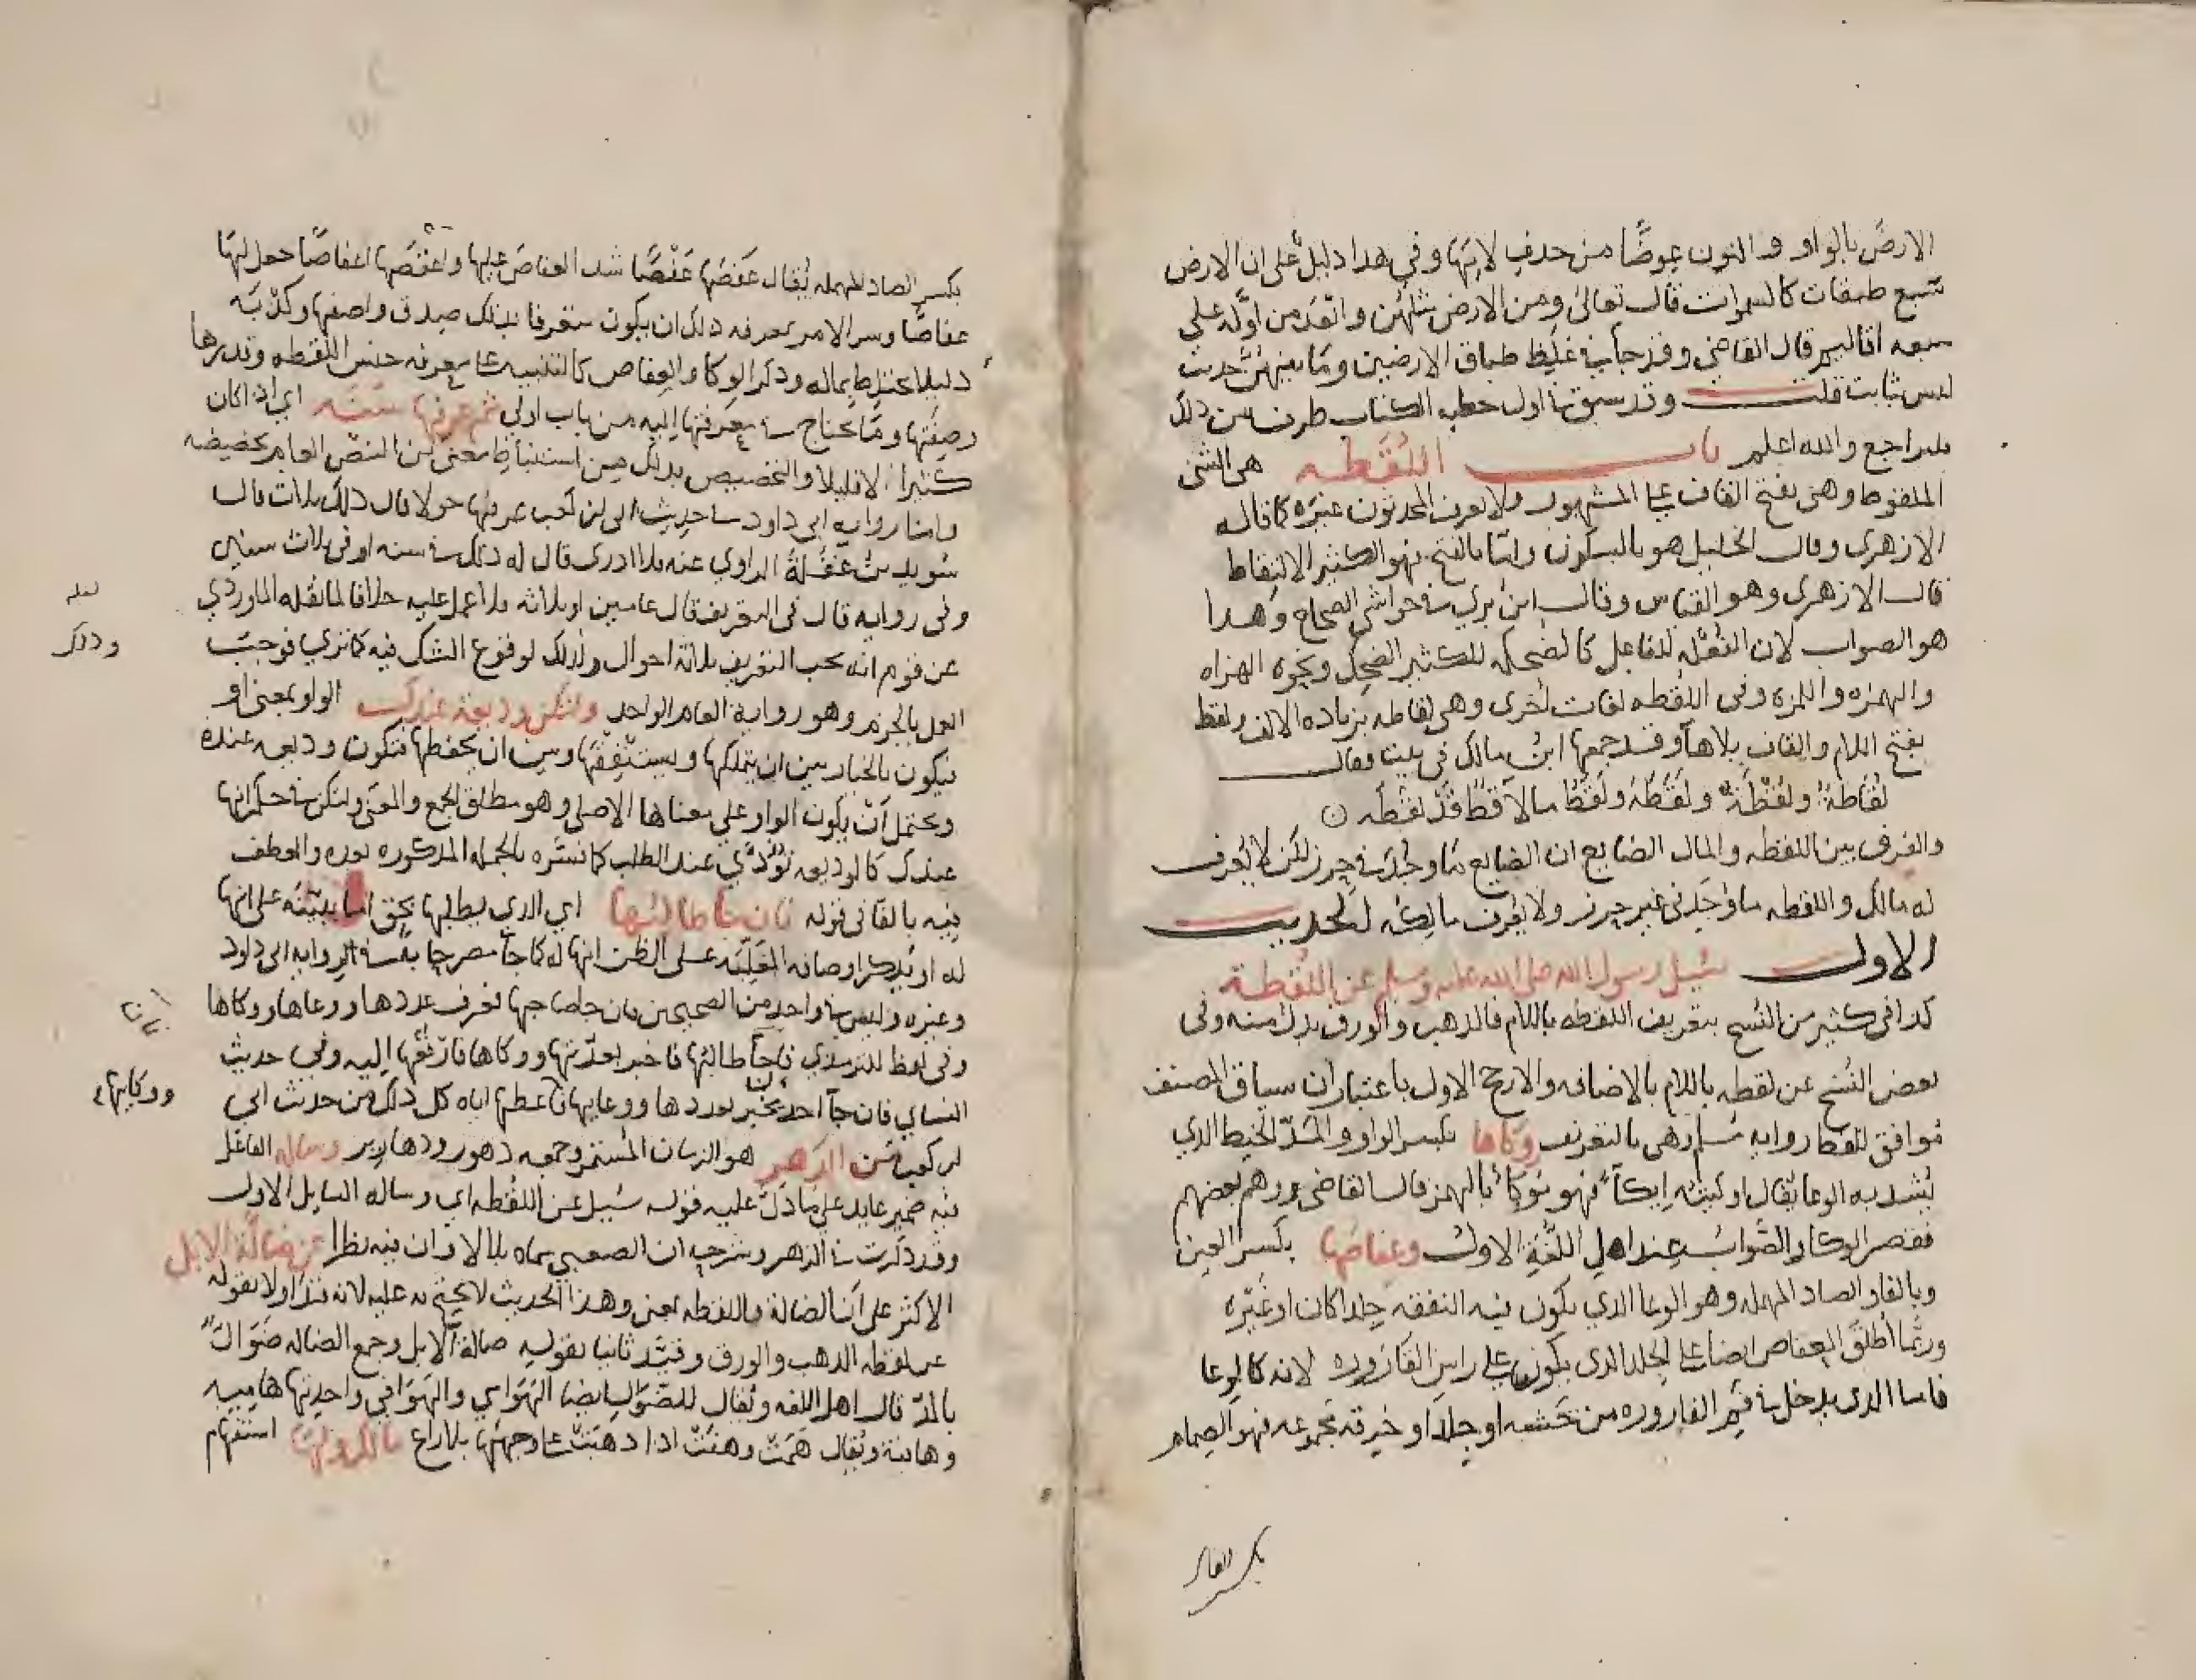 الارض بالواو والنون عوضًا من حذف لامها وفي هذا دليل على ان الارض
سبع طبقات كالسموات قال تعالى ومن الارض مثلهن وابعد من اوله على
سبعه اقاليم قال القاضي وقد جا في غلظ طباق الارضين وما بينهن حديث
ليس بثابت قلت وقد سبق في اول خطبه الكتاب طرف من ذلك
فليراجع والله اعلم باب اللُقَطه هي الشى
الملقوط وهي بفتح القاف على المشهور ولا يعرف المحدثون غيره كما قاله
الازهرى وقال الخليل هو بالسكون وامّا بالفتح فهو الكثير الالتقاط
قال الازهرى وهو القياس وقال ابن بري في حواشي الصحاح وهذا
هو الصواب لان الفُعَله للفاعل كالضحكه للكثير الضحك ونحوه الهزاه
والهمزه واللمزه وفى اللقطه لغات اخرى وهي لقاطه بزياده الالف ولقط
بفتح اللام والقاف بلا هاء وقد جمعها ابن مالك في بيت فقال
لُقَاطَةٌ ولُقْطَةٌ ولُقَطَهْ ولَقَطٌ ما لاقطٌ قد لقَطَه
والفرق بين اللقطه والمال الضايع ان الضايع ما وجد في حرز لكن لا يعرف
له مالك واللقطه ما وجد في غير حرز ولا يعرف مالكه الحديث
الاول سُئل رسول الله صلى الله عليه وسلم عن اللُقَطة
كذا في كثير من النُسخ بتعريف اللقطه باللام فالذهب والورق بدل منه وفى
بعض النُسخ عن لقطه باللام بالاضافه والارجح الاول باعتبار ان سياق المصنف
موافق للفظ روايه مسلم وهي بالتعريف وِكاها بكسر الواو والمَدّ الخيط الذي
يُشد به الوعا يقال اوكيته اِيكاءً فهو مُوكأ بالهمز قال القاضى ووهم بعضهم
فقصر الوكا والصواب عند اهل اللُغة الاول وعفاصَها بكسر العين
وبالفاء والصاد المهمله وهو الوعا الذي يكون فيه النفقه جلدا كان او غيره
وربّما اُطلق العفاص ايضا على الجلد الذى يكون على راس القاروره لانه كالوعا
فاما الذى يدخل في فم القاروره من خشبه او جلد او خرقه مجموعه فهو الصِمام
بكسر الصاد المهمله يُقال عَفَصَها عَفْصًا شد العفاص عليها واعْفَصَها اعفاصًا جعل لها
عفاصًا وسر الامر بمعرفه ذلك ان يكون متعرفا بذلك صدق واصفها وكذبه
وليلا يختلط بماله وذكر الوكا والعِفاص كالتنبيه على معرفه جنس اللقطه وقدرها
وصِفَتها وما يحتاج في معرفتها اليه من باب اولى ثم عرفها سَنَه اى اذا كان
كثيرا لا قليلا والتخصيص بذلك من استنباط معنى من النصّ العام يخصصه
وامّا روايه ابي داود في حديث اُبى بن كعب عرفها حولا قال ذلك ثلاث قال
سُويد بن غَفَلَةَ الراوي عنه فلا ادرى قال له ذلك في سنه او فى ثلاث سنين
وفى روايه قال فى التعريف قال عامين او ثلاثه فلا عمل عليه خلافا لما نقله الماوردي
عن قوم انه يجب التعريف ثلاثة احوال ولذلك لوقوع الشك فيه كما ترى فوجب
العمل بالجزم وهو رواية العام الواحد ولتكن وديعة عندك الواو بمعنى او
فيكون بالخيار بين ان يتملكها ويستنفقها وبين ان يحفظها فتكون وديعه عنده
ويحتمل أنْ يكون الواو على معناها الاصلى وهو مطلق الجمع والمعنى ولتكن في حكم انها
عندك كالوديعه تُؤدّي عند الطلب كما فسّره بالجمله المذكوره بعده والعطف
فيه بالفا فى قوله فان جا طالبُها اي الذي يطلبها بحق اما ببيّنه على انها
له او بذكر اوصافه المُغلّبه على الظن انها له كما جا مصرحا به في الروايه ابى داود
وغيره وليس في واحد من الصحيحين فان جا صاحبها فعرف عددها ووعاها ووكاها
وفى لفظ للترمذي فاِذا جآ طالبُها فاخبر بعدّتها ووكاها فادْفعها اليه وفى حديث
النساي فان جآ احد يخبر بعددها ووعايها فاعطها اياه كل ذلك من حديث ابي
ابن كعب مِن الدهر هو الزمان المُستمر وجمعه دهور ودهارير وساله الفاعل
فيه ضمير عايد على ما دَلّ عليه قوله سُيل عن اللُقطه اى وساله السايل الاول
وقد ذكرت في الزهر وشرحه ان الصعبي سماه بلالا وان فيه نظرا عن ضالّة الابل
الاكثر على اَنّ الضالة واللقطه بمعنى وهذا الحديث لا يحتج به عليه لانه قيّد اولا بقوله
عن لقطه الذهب والورق وقيّد ثانيا بقوله ضالة الابل وجمع الضاله ضَوَالّ
بالمدّ قال اهل اللغه ويُقال للضوال ايضا الهَوَامي والهَوَافي واحدتها هاميه
وهافية ويُقال هَمَتْ وهفَتْ اذا ذهبتْ على وجهها بلا راع مالك ولها استفهام
لعله
وذلك
ووكايها